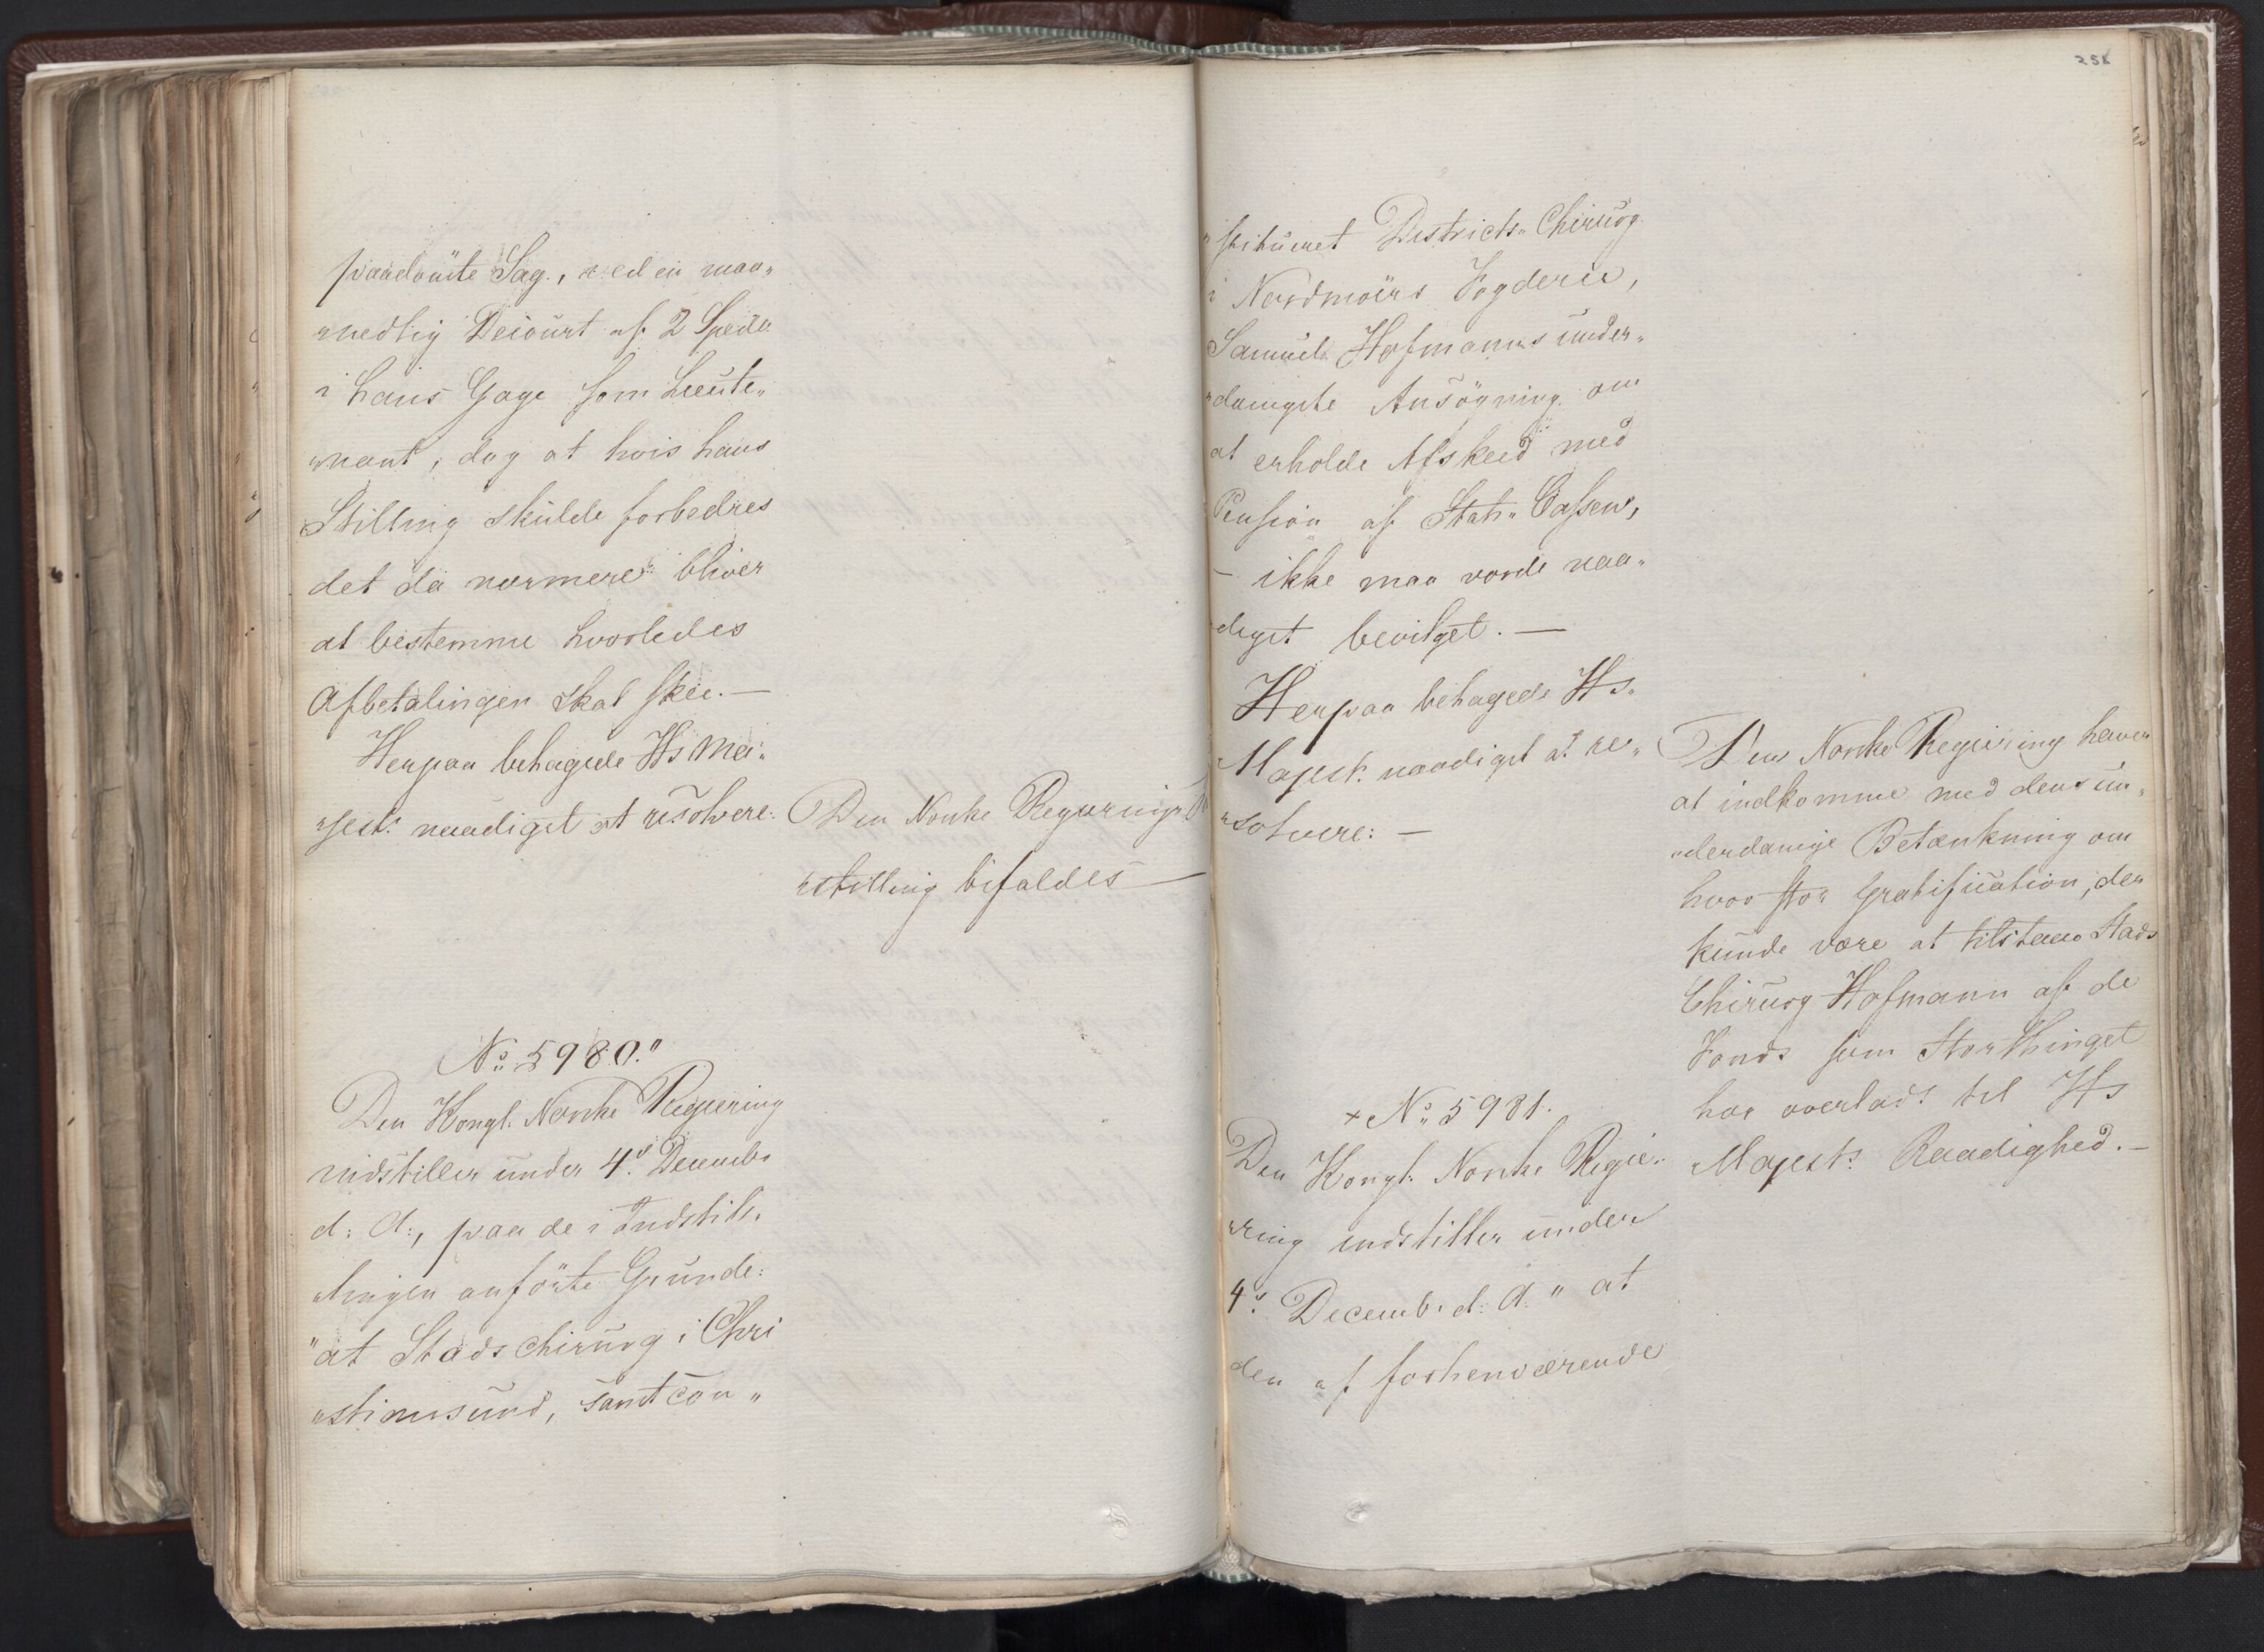 paadömte Sag, ved en maa„
„nedlig Decourt af 2 Spedr
i hans Gage som Lieute„
„nant, dog at hvis hans
Stilling skulde forbedres
det da nærmere bliver
at bestemme hvorledes
Afbetalingen skal skee. —
Herpaa behagede Hs Ma„
„jest: naadigst at resolvere:
Den Norske Regjerings
„stilling bifaldes —
No 5980."
Den Kongl: Norske Regjering
indstiller under 4d Decembr
d: A:, paa de i Indstil„
„lingen anförte Grunde:
"at Stadschirurg i Chri
„stiansund, samt con„
258
„stitueret Districts„ Chirurg
i Nordmöers Fogderie,
Samuel Hofmanns under„
„danigste Ansögning om
at erholde Afskeed med
Pension af Stats„ Cassen,
— ikke maa vorde naa„
„digst bevilget. —
Herpaa behagede Hs.
Majest: naadigst at re„
„solvere: —
Den Norske Regiering haver
at indkomme med dens un„
„derdanige Betænkning om
hvor stor Gratification, der
kunde være at tilstaae Stads
Chirurg Hofmann af de
Fonds som Storthinget
har overladt til Hs
Majests Raadighed. —
+ No 5981.
Den Kongl: Norske Regie„
„ring indstiller under
4d Decemb: d: A: " at
den af forhenværende